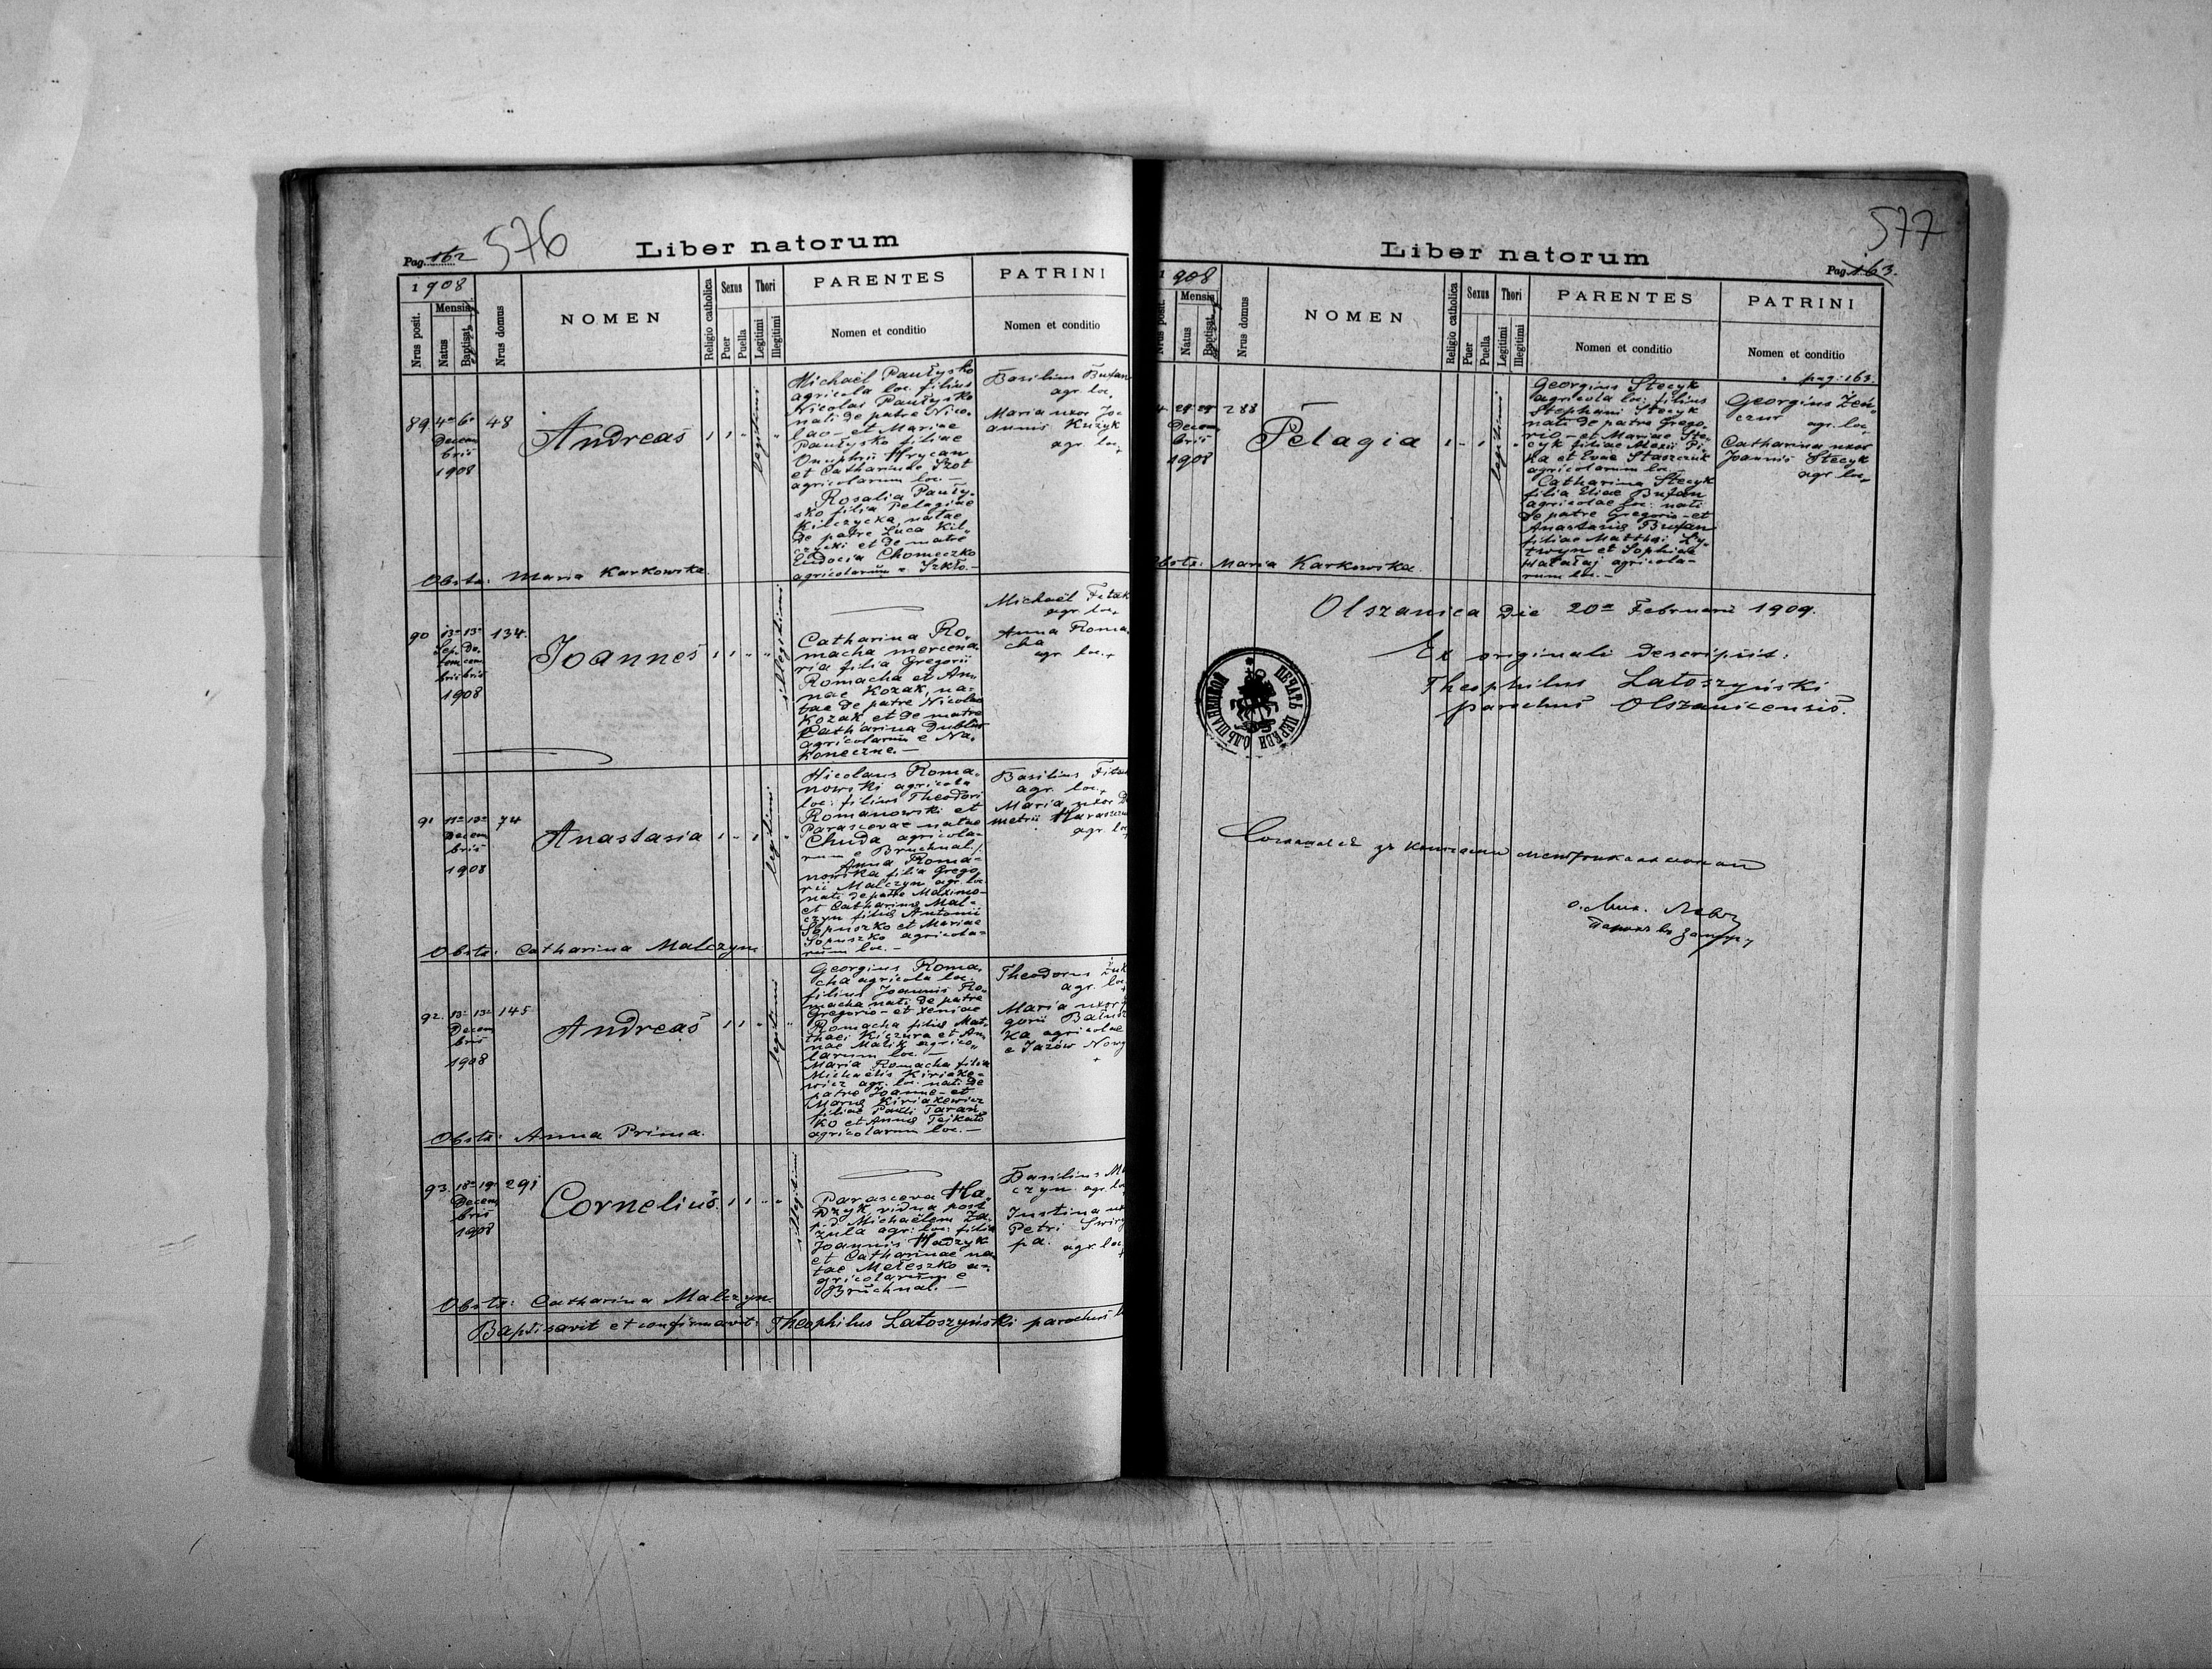 576
Liber natorum
Pag. 162
1908
Nrus posit.
Mensis
Natus
Baptisat.
Nrus domus
NOMEN
Religio catholica
Sexus
Puer
Puella
Thori
Legitimi
Illegitimi
PARENTES
Nomen et conditio
PATRINI
Nomen et conditio
89 4ᵃ 6ᵃ 48
Decem
bris
1908
Andreas
legitimi
Michaël Pautysko
agricola loc. filius
Nicolai Pautysko
nati de patre Nico-
lao - et Mariae
Pautysko filiae
Onuphrii Hrycan
et Catharinae Szot
agricolarum loc -
Rosalia Pauty-
sko filia Pelagiae
Kilczycka, natae
de patre Luca Kil-
czycki et de matre
Eudocia Chomeczko
agricolarum e Szkło.-
Basilius Buxan
agr. loc.
Maria uxor Jo-
annis Kuzyk
agr. loc.
Obste: Maria Karkowska.
90 13ᵃ 13ᵃ 134.
Sep. De-
tem cem
bris bris
1908
Joannes
illegitimi
Catharina Ro-
macha mercena-
ria filia Gregorii
Romacha et An-
nae Kozak, na-
tae de patre Nicolao
Kozak, et de matre
Catharina Dublas
agricolarum e Na-
koneczne. -
Michaël Fitak
agr. loc.
Anna Roma-
cha
agr. loc.
91 11ᵃ 13ᵃ 74
Decem
bris
1908
Anastasia
legitimi
Nicolaus Roma-
nowski agricola
loc: filius Theodori
Romanowski et
Parascevae natae
Chuda agricola-
rum e Bruchnal.
Anna Roma-
nowska filia Grego-
rii Malczyn agr. loc
nati de patre Maximo -
et Catharinae Mal-
czyn filiae Antonii
Sopuszko et Mariae
Sopuszko agricola-
rum loc. -
Basilius Fitak
agr. loc.
Maria uxor De
metrii Harasym
agr. loc
Obste: Catharina Malczyn
92. 13ᵃ 13ᵃ 145
Decem
bris
1908
Andreas
legitimi
Georgius Roma-
cha agricola loc.
filius Joannis Ro-
macha nati de patre
Gregorio - et Xeniae
Romacha filiae Mat-
thaei Kiczura et An-
nae Malik agrico-
larum loc. -
Maria Romacha filia
Michaëlis Kiriake-
wicz agr. loc. nati de
patre Joanne - et
Mariae Kiriakewicz
filiae Pauli Taran
ko et Annae Fejkało
agricolarum loc. -
Theodorus Żuk
agr. loc
Maria uxor
gorii Bałusz
ka agricolae
e Jażów Nowy
Obste: Anna Prima.
93. 18ᵃ 19ᵃ 291
Decem
bris
1908
Cornelius.
illegitimi
Parasceva Ha-
dzyk vidua post
p. d. Michaëlem Za-
zula agr: loc: filia
Joannis Hadzyk
et Catharinae na-
tae Meleszko a-
gricolarum e
Bruchnal. -
Basilius M
czyn. agr. loc
Justina ux
Petri Swirz
pa. agr. loc
Obste: Catharina Malczyn.
Baptisavit et confirmavit: Theophilus Latoszyński parochus
577
Liber natorum
Pag. 163.
1908
Nrus posit.
Mensis
Natus
Baptisat.
Nrus domus
NOMEN
Religio catholica
Sexus
Puer
Puella
Thori
Legitimi
Illegitimi
PARENTES
Nomen et conditio
PATRINI
Nomen et conditio
pag: 163.
4. 29ᵃ 29ᵃ 288
Decem
bris
1908
Pelagia
legitimi
Georgius Stecyk
agricola loc: filius
Stephani Stecyk
nati de patre Grego-
rio - et Mariae Ste-
cyk filiae Alexii Pi-
ka et Evae Staszczuk
agricolarum loc. -
Catharina Stecyk
filia Eliae Buxan
agricolae loc: nati
de patre Gregorio - et
Anastasiae Buxan
filiae Matthaei Ly-
twyn et Sophiae
Hałałaj agricola-
rum loc. -
Georgius Zen-
czur
agr. loc.
Catharina uxor
Joannis Stecyk
agr. loc.
bste: Maria Karkowska.
Olszanica Die 20ᵃ Februarii 1909.
Ex originali descripsit:
Theophilus Latoszyński
parochus Olszanicensis.
ПЕЧАТЬ ЦЕРКВИ